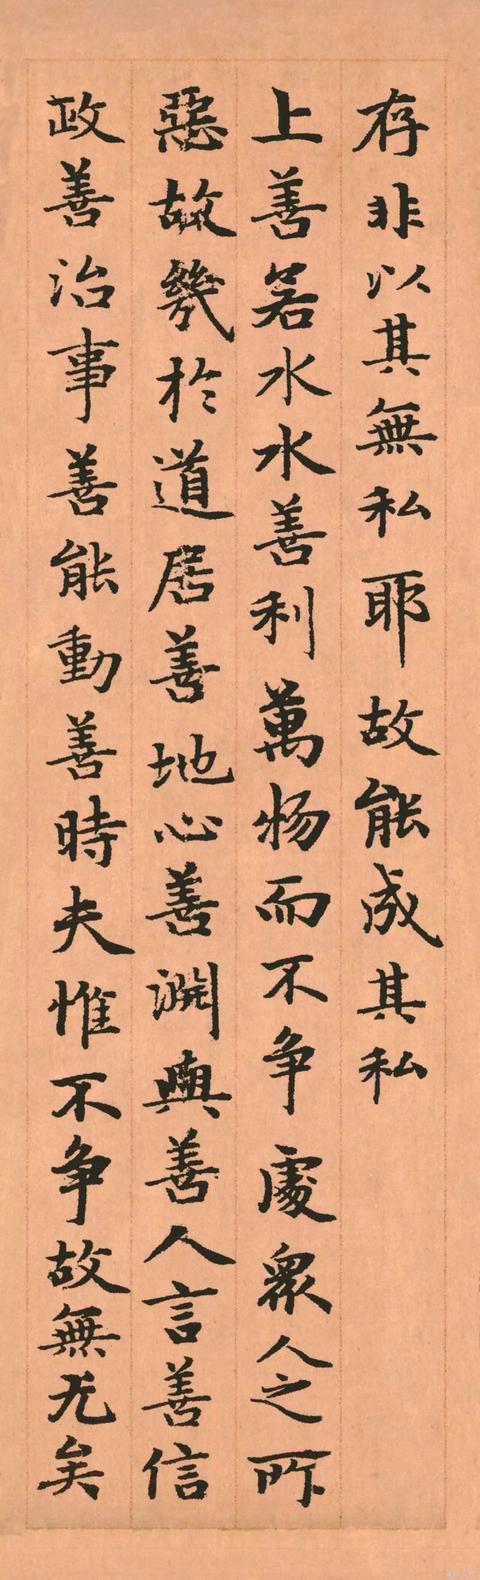 存非以其無私耶故能成其私
上善若水水善利萬物而不争處衆人之所
惡故幾於道居善地心善淵與善人言善信
政善治事善能動善時夫惟不争故無尤矣